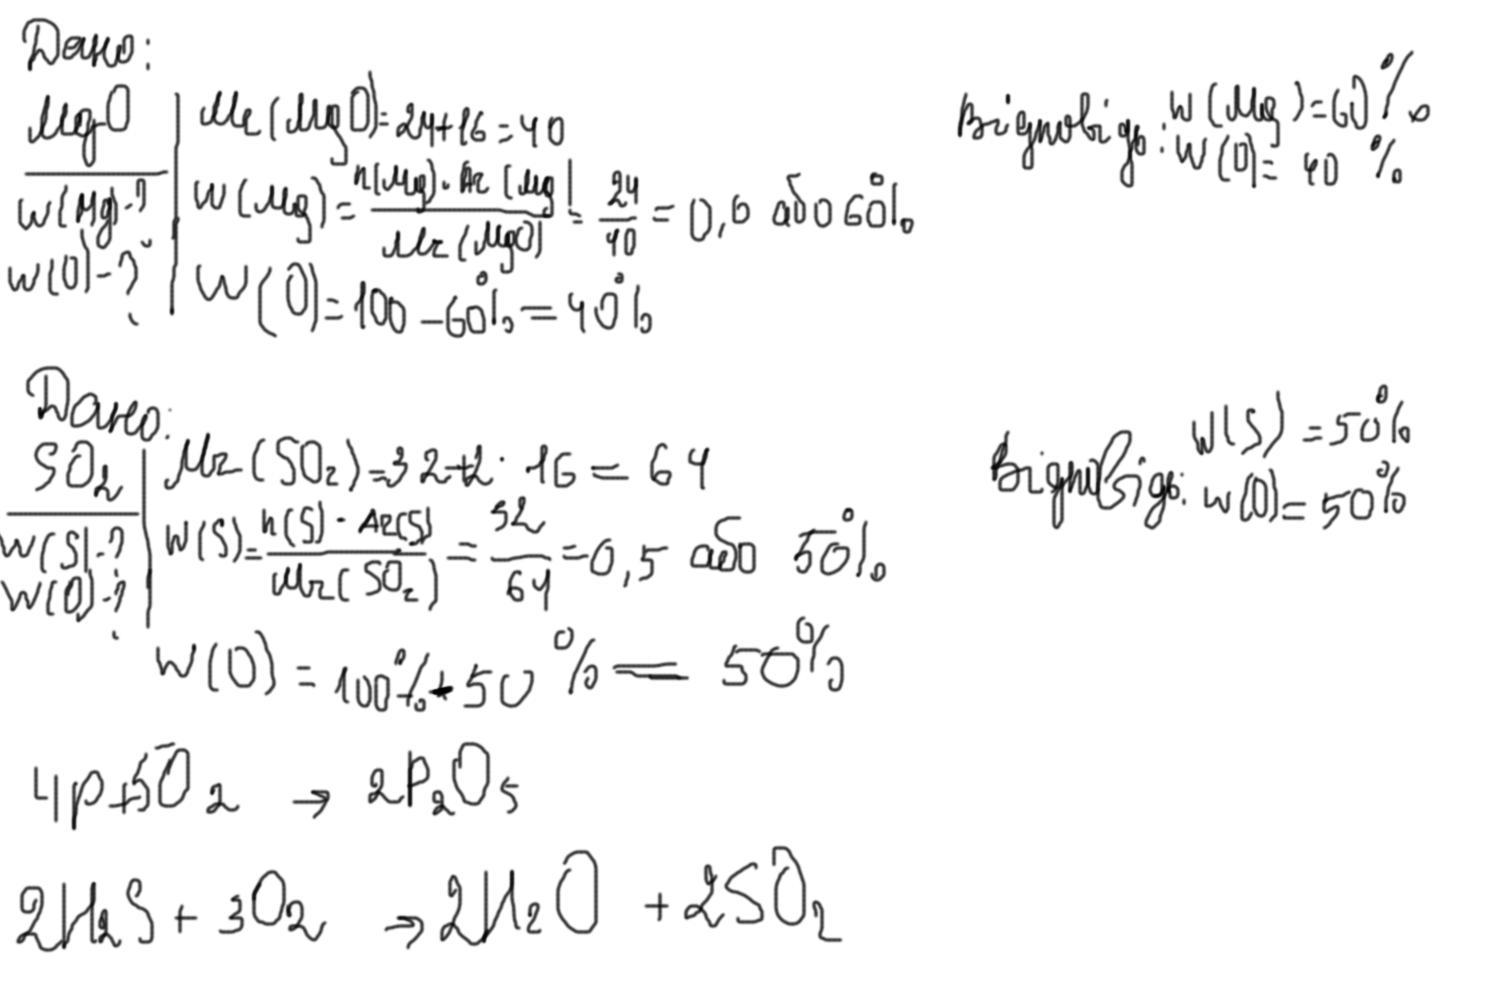 Дано:
MgO
W(Mg)-?
W(O)-?
Mr(MgO)=24+16=40
W(Mg)=n(Mg)·Ar(Mg)/Mr(MgO)=24/40=0,6 або 60%
W(O)=100-60%=40%
Відповідь: W(Mg)=60%
W(O)=40%
Дано:
SO₂
W(S)-?
W(O)-?
Mr(SO₂)=32+2·16=64
W(S)=n(S)·Ar(S)/Mr(SO₂)=32/64=0,5 або 50%
W(O)=100%+50%=50%
Відповідь: W(S)=50%
W(O)=50%
4P+5O₂→2P₂O₅
2H₂S+3O₂→2H₂O+2SO₂